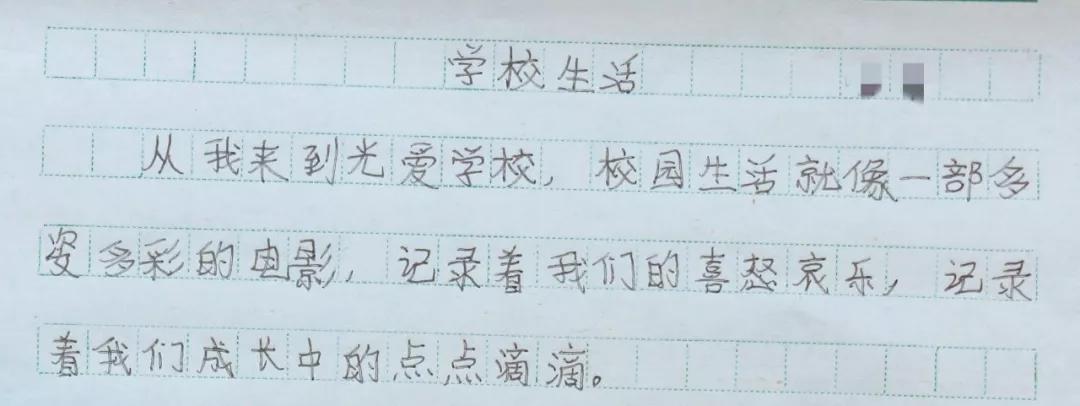 学校生活
从我来到光爱学校，校园生活就像一部多
姿多彩的电影，记录着我们的喜怒哀乐，记录
着我们成长中的点点滴滴。